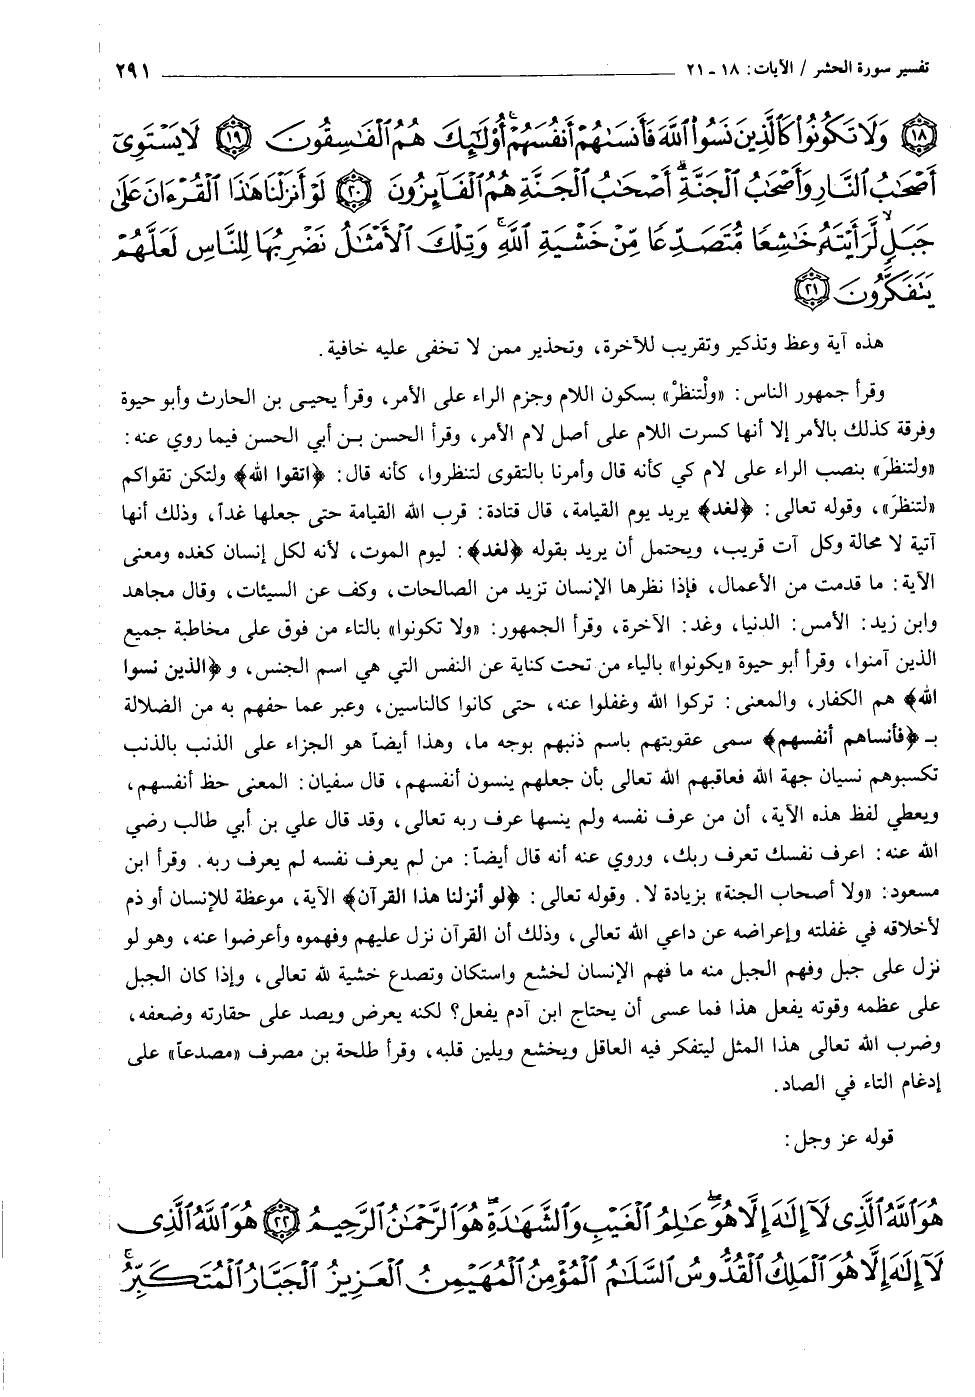 تفسير سورة الحشر / الآيات: ١٨ - ٢١ ٢٩١
﴿١٨﴾ وَلَا تَكُونُوا۟ كَٱلَّذِينَ نَسُوا۟ ٱللَّهَ فَأَنسَىٰهُمْ أَنفُسَهُمْ ۚ أُو۟لَٰٓئِكَ هُمُ ٱلْفَٰسِقُونَ ﴿١٩﴾ لَا يَسْتَوِىٓ
أَصْحَٰبُ ٱلنَّارِ وَأَصْحَٰبُ ٱلْجَنَّةِ ۚ أَصْحَٰبُ ٱلْجَنَّةِ هُمُ ٱلْفَآئِزُونَ ﴿٢٠﴾ لَوْ أَنزَلْنَا هَٰذَا ٱلْقُرْءَانَ عَلَىٰ
جَبَلٍ لَّرَأَيْتَهُۥ خَٰشِعًا مُّتَصَدِّعًا مِّنْ خَشْيَةِ ٱللَّهِ ۚ وَتِلْكَ ٱلْأَمْثَٰلُ نَضْرِبُهَا لِلنَّاسِ لَعَلَّهُمْ
يَتَفَكَّرُونَ ﴿٢١﴾
هذه آية وعظ وتذكير وتقريب للآخرة، وتحذير ممن لا تخفى عليه خافية.
وقرأ جمهور الناس: «ولْتنظرْ» بسكون اللام وجزم الراء على الأمر، وقرأ يحيى بن الحارث وأبو حيوة
وفرقة كذلك بالأمر إلا أنها كسرت اللام على أصل لام الأمر، وقرأ الحسن بن أبي الحسن فيما روي عنه:
«ولتنظرَ» بنصب الراء على لام كي كأنه قال وأمرنا بالتقوى لتنظروا، كأنه قال: ﴿اتقوا الله﴾ ولتكن تقواكم
«لتنظرَ»، وقوله تعالى: ﴿لغد﴾ يريد يوم القيامة، قال قتادة: قرب الله القيامة حتى جعلها غداً، وذلك أنها
آتية لا محالة وكل آت قريب، ويحتمل أن يريد بقوله ﴿لغد﴾: ليوم الموت، لأنه لكل إنسان كغده ومعنى
الآية: ما قدمت من الأعمال، فإذا نظرها الإنسان تزيد من الصالحات، وكف عن السيئات، وقال مجاهد
وابن زيد: الأمس: الدنيا، وغد: الآخرة، وقرأ الجمهور: «ولا تكونوا» بالتاء من فوق على مخاطبة جميع
الذين آمنوا، وقرأ أبو حيوة «يكونوا» بالياء من تحت كناية عن النفس التي هي اسم الجنس، و ﴿الذين نسوا
الله﴾ هم الكفار، والمعنى: تركوا الله وغفلوا عنه، حتى كانوا كالناسين، وعبر عما حفهم به من الضلالة
بـ ﴿فأنساهم أنفسهم﴾ سمى عقوبتهم باسم ذنبهم بوجه ما، وهذا أيضاً هو الجزاء على الذنب بالذنب
تكسبوهم نسيان جهة الله فعاقبهم الله تعالى بأن جعلهم ينسون أنفسهم، قال سفيان: المعنى حظ أنفسهم،
ويعطي لفظ هذه الآية، أن من عرف نفسه ولم ينسها عرف ربه تعالى، وقد قال علي بن أبي طالب رضي
الله عنه: اعرف نفسك تعرف ربك، وروي عنه أنه قال أيضاً: من لم يعرف نفسه لم يعرف ربه. وقرأ ابن
مسعود: «ولا أصحاب الجنة» بزيادة لا. وقوله تعالى: ﴿لو أنزلنا هذا القرآن﴾ الآية، موعظة للإنسان أو ذم
لأخلاقه في غفلته وإعراضه عن داعي الله تعالى، وذلك أن القرآن نزل عليهم وفهموه وأعرضوا عنه، وهو لو
نزل على جبل وفهم الجبل منه ما فهم الإنسان لخشع واستكان وتصدع خشية لله تعالى، وإذا كان الجبل
على عظمه وقوته يفعل هذا فما عسى أن يحتاج ابن آدم يفعل؟ لكنه يعرض ويصد على حقارته وضعفه،
وضرب الله تعالى هذا المثل ليتفكر فيه العاقل ويخشع ويلين قلبه، وقرأ طلحة بن مصرف «مصدعاً» على
إدغام التاء في الصاد.
قوله عز وجل:
هُوَ ٱللَّهُ ٱلَّذِى لَآ إِلَٰهَ إِلَّا هُوَ ۖ عَٰلِمُ ٱلْغَيْبِ وَٱلشَّهَٰدَةِ ۖ هُوَ ٱلرَّحْمَٰنُ ٱلرَّحِيمُ ﴿٢٢﴾ هُوَ ٱللَّهُ ٱلَّذِى
لَآ إِلَٰهَ إِلَّا هُوَ ٱلْمَلِكُ ٱلْقُدُّوسُ ٱلسَّلَٰمُ ٱلْمُؤْمِنُ ٱلْمُهَيْمِنُ ٱلْعَزِيزُ ٱلْجَبَّارُ ٱلْمُتَكَبِّرُ ۚ